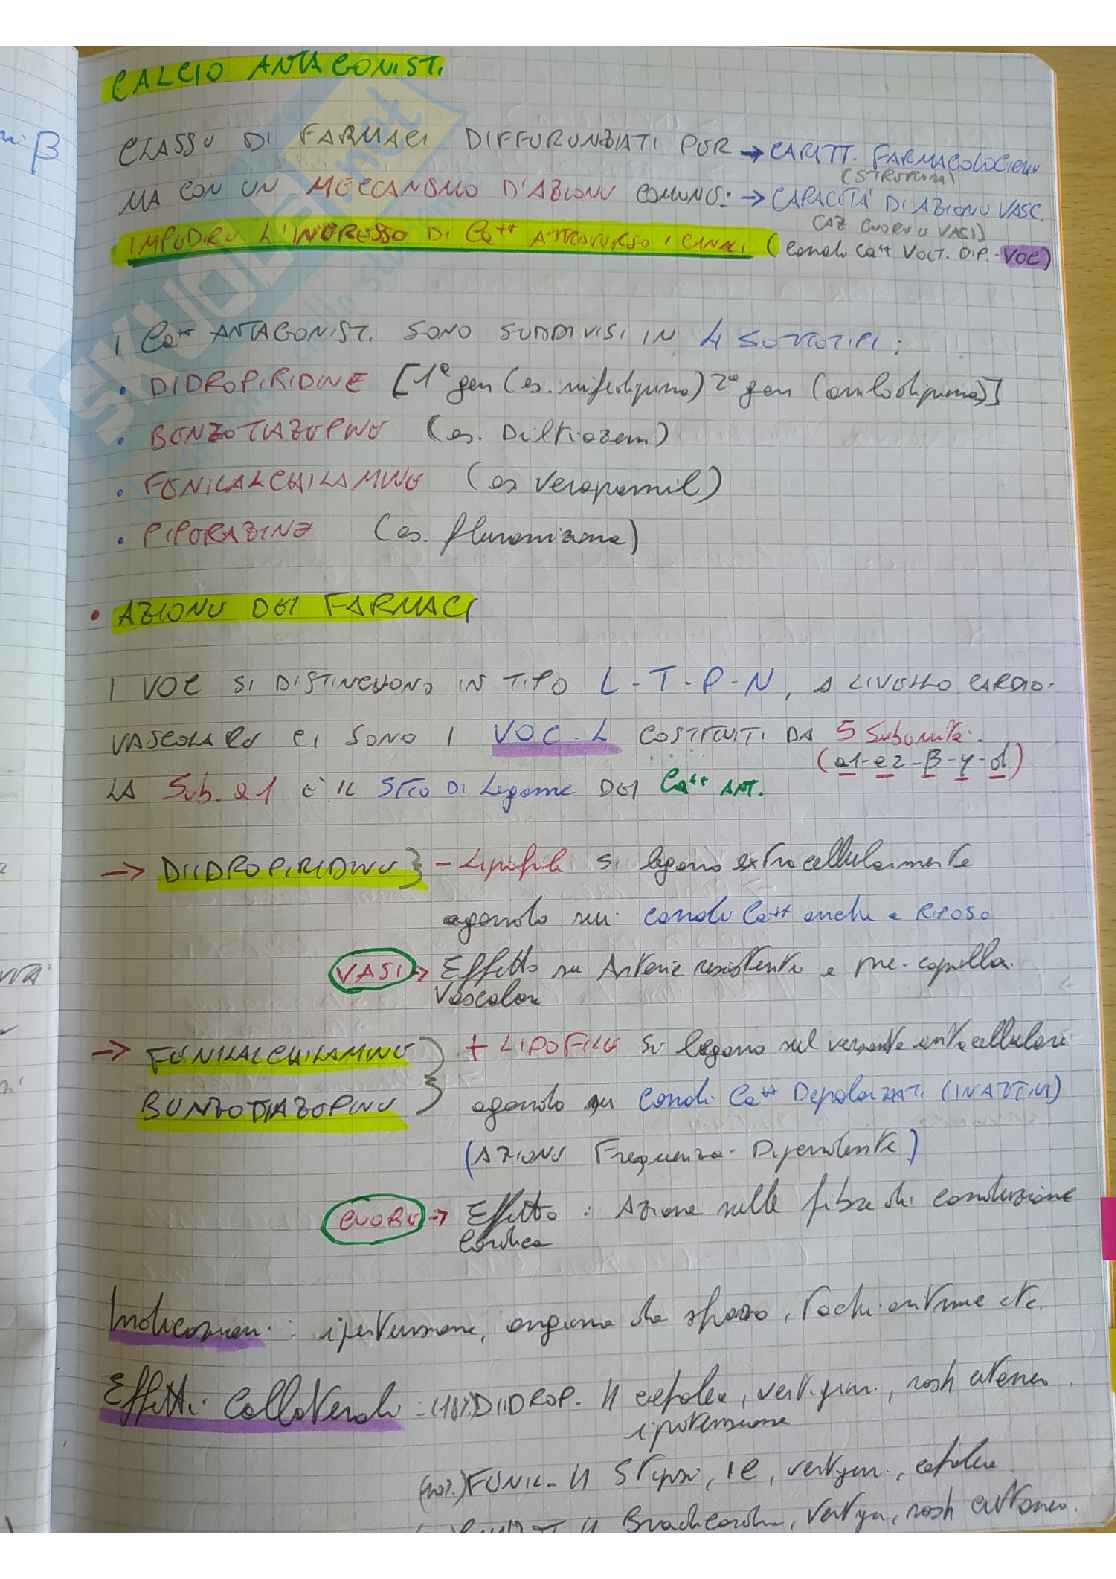 CALCIO ANTAGONISTI
CLASSE DI FARMACI DIFFERENZIATI PER → CARATT. FARMACOLOGICHE
(STRUTTURA)
MA CON UN MECCANISMO D'AZIONE COMUNE: → CAPACITÀ DI AZIONE VASC.
(AZ CUORE O VASI)
IMPEDIRE L'INGRESSO DI Ca++ ATTRAVERSO I CANALI (canali Ca++ VOLT. DIP. - VOC)
I Ca++ ANTAGONISTI SONO SUDDIVISI IN 4 SOTTOTIPI:
• DIDROPIRIDINE [1° gen (es. nifedipina) 2° gen (amlodipina)]
• BENZOTIAZEPINE (es. Diltiazem)
• FENILALCHILAMINE (es verapamil)
• PIPERAZINE (es. flunarizina)
• AZIONE DEI FARMACI
I VOC SI DISTINGUONO IN TIPO L-T-P-N, A LIVELLO CARDIO-
VASCOLARE CI SONO I VOC-L COSTITUITI DA 5 Subunità.
(α1-α2-β-γ-d)
LA Sub. α1 È IL SITO DI Legame DEI Ca++ ANT.
→ DIIDROPIRIDINE } - Lipofile si legano extracellularmente
agendo sui canali Ca++ anche a RIPOSO
VASI → Effetto su Arterie resistenti e pre-capillari
Vascolare
→ FENILALCHILAMINE } + LIPOFILE Si legano sul versante intracellulare
BENZOTIAZEPINE agendo su Canali Ca++ Depolarizzati (INATTIVI)
(AZIONE Frequenza-Dipendente)
CUORE → Effetto : Azione sulle fibre di conduzione
Cardiaca
Indicazioni: ipertensione, angina da sforzo, tachiaritmie etc.
Effetti Collaterali: (18%) DIIDROP. // cefalea, vertigini, rash cutaneo.
ipotensione
FENIL. // Stipsi, IC, vertigini, cefalea
// Bradicardia, vertigini, rash cutaneo.
β
SKUOLA.net